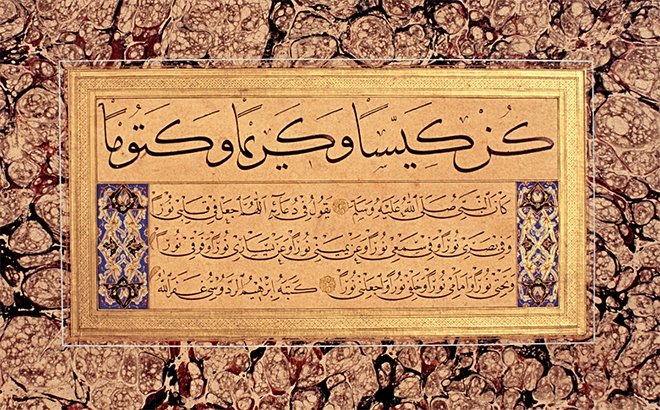 كُنْ كَيِّسًا وَكَرِيمًا وَكَتُومًا
كَانَ النَّبِيُّ صَلَّى اللهُ عَلَيْهِ وَسَلَّمَ يَقُولُ فِي دُعَائِهِ اللَّهُمَّ اجْعَلْ فِي قَلْبِي نُورًا
وَفِي بَصَرِي نُورًا وَفِي سَمْعِي نُورًا وَعَنْ يَمِينِي نُورًا وَعَنْ يَسَارِي نُورًا وَفَوْقِي نُورًا
وَتَحْتِي نُورًا وَأَمَامِي نُورًا وَخَلْفِي نُورًا وَاجْعَلْنِي نُورًا كَتَبَهُ إبْرٰهِيمُ الرَّدُوسِيُّ عَفَا عَنْهُ اللهُ